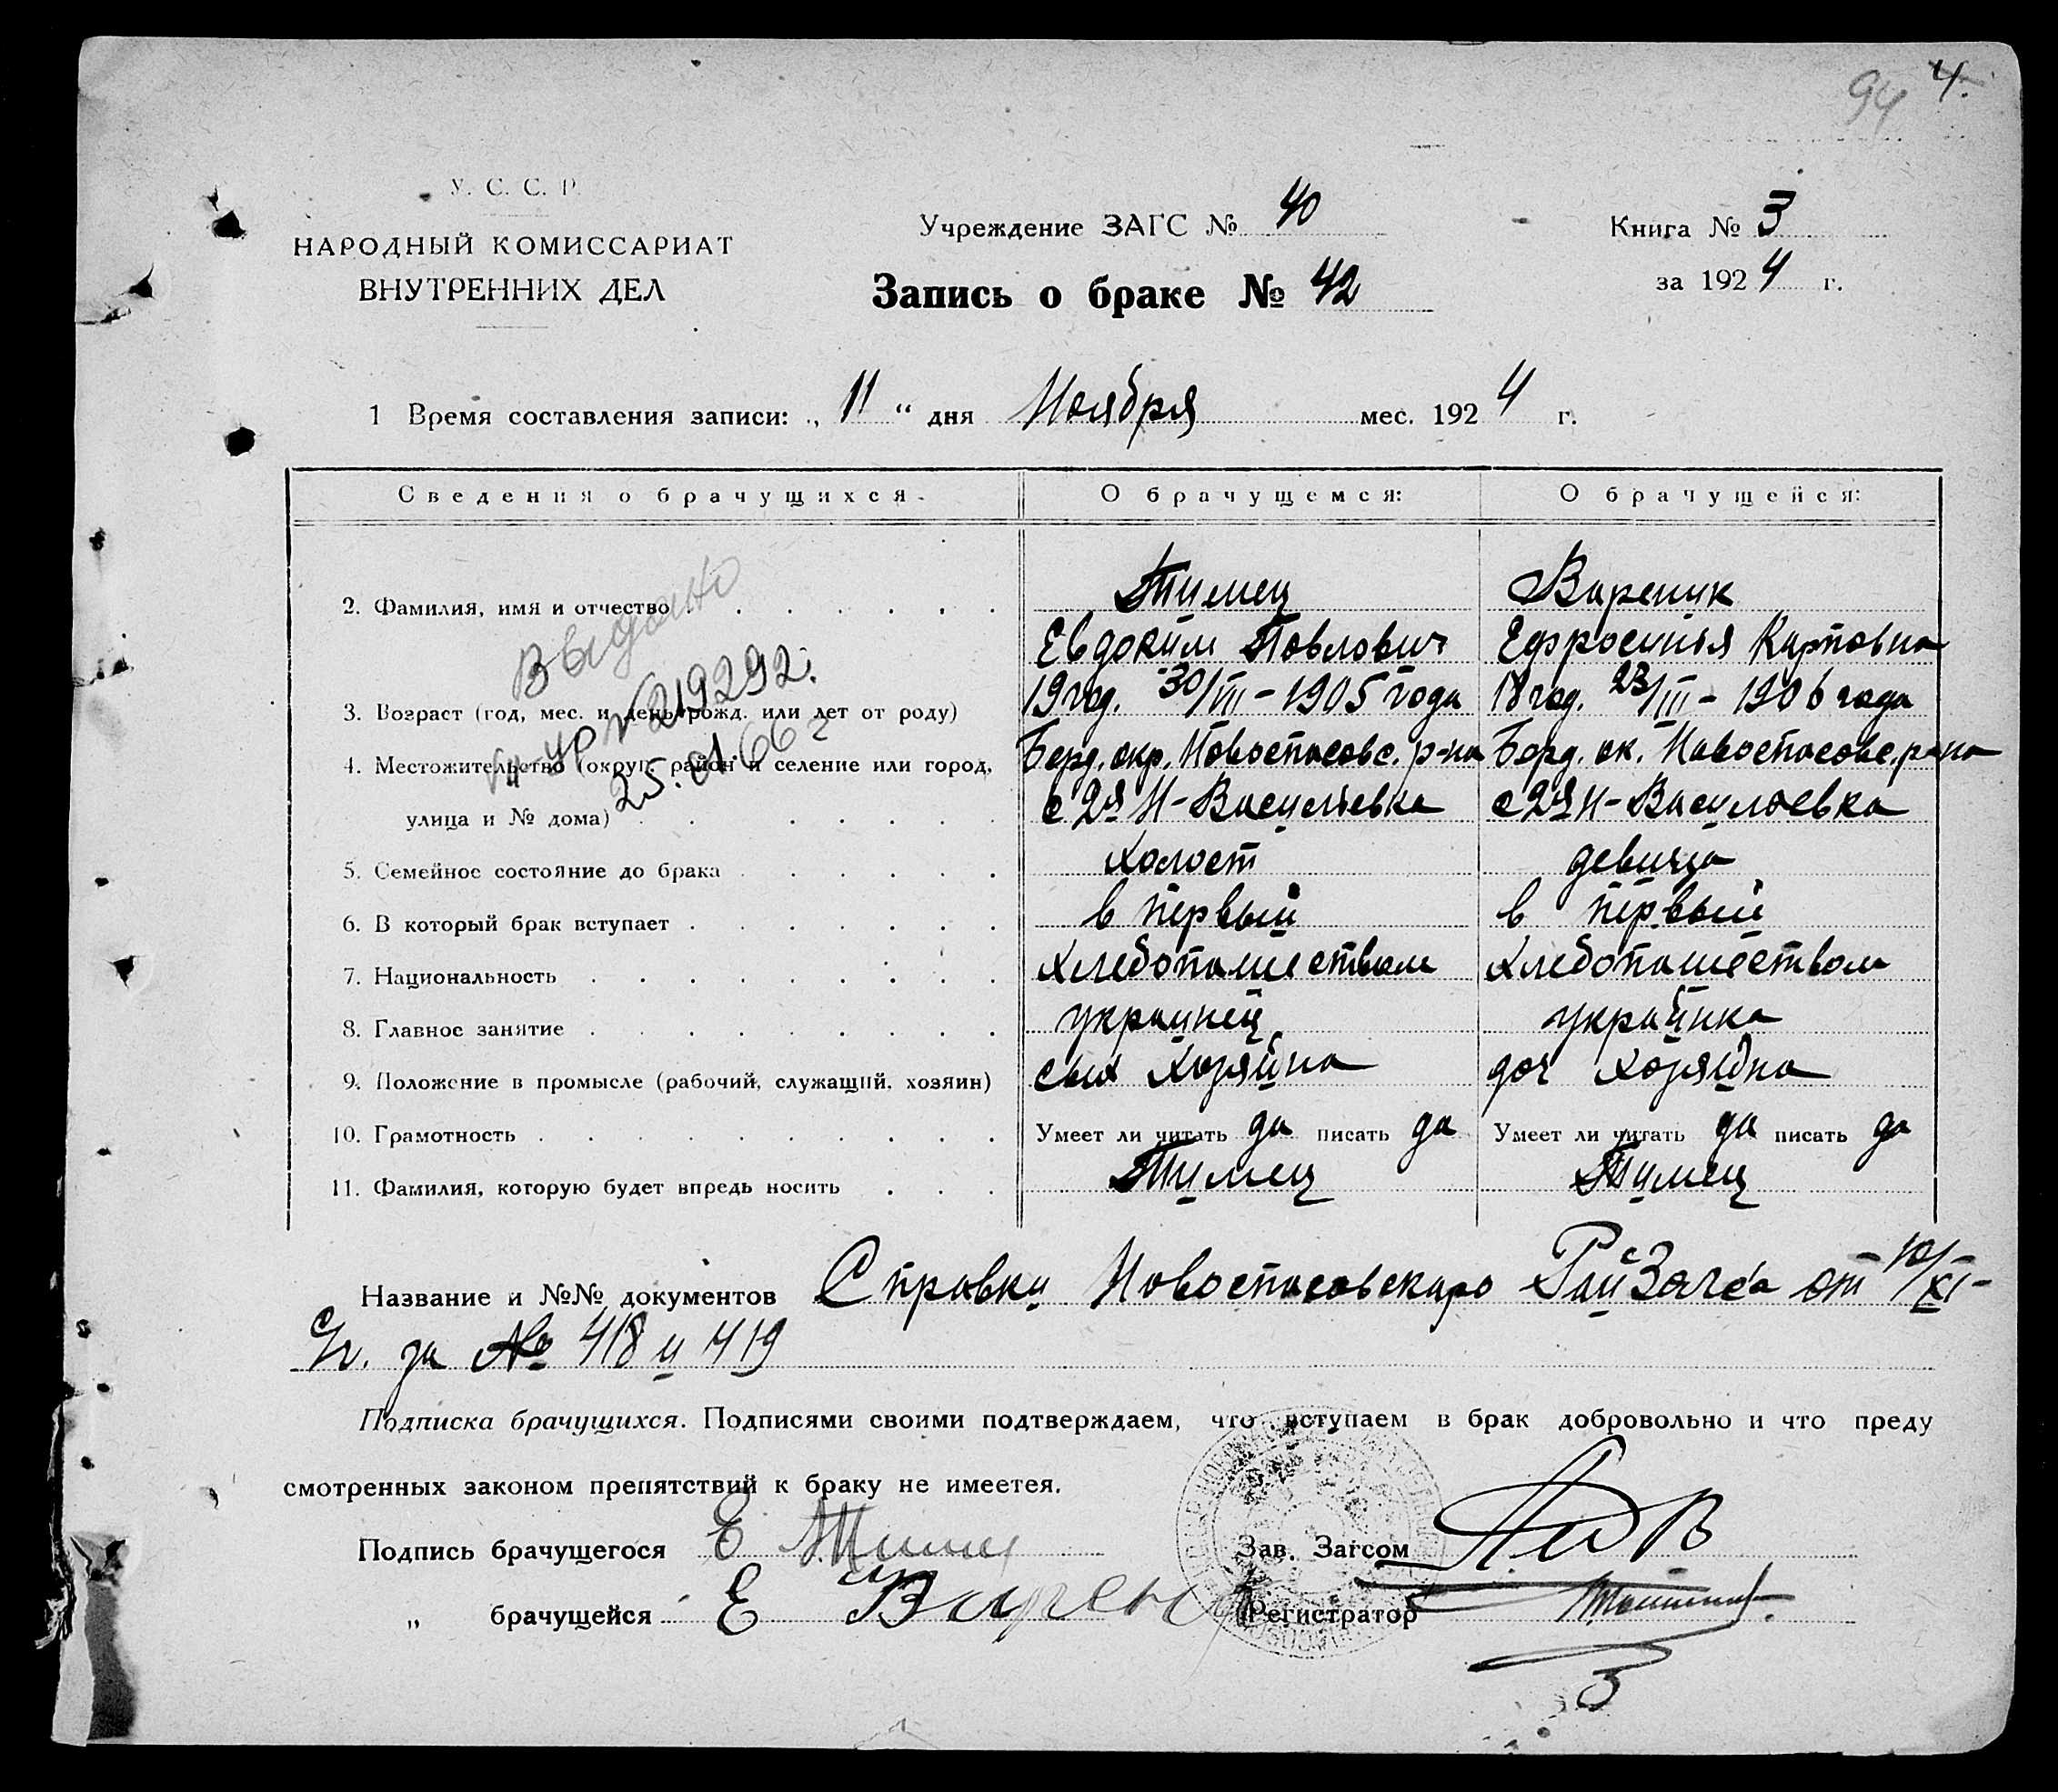 94 4.
У. С. С. Р.
НАРОДНЫЙ КОМИССАРИАТ
ВНУТРЕННИХ ДЕЛ
Учреждение ЗАГС № 40
Запись о браке № 42
Книга № 3
за 1924 г.
1 Время составления записи: „ 11 “ дня Ноября мес. 1924 г.
Сведения о брачущихся. О брачущемся: О брачущейся:
2. Фамилия, имя и отчество Тимец Вареник
Евдоким Павлович Ефросинья Карповна
3. Возраст (год, мес. и день рожд. или лет от роду) 19 год. 30/VII - 1905 года 18 год. 23/III - 1906 года
4. Местожительство (округ, район и селение или город, Берд. окр. Новоспасовс. р-на Берд. ок. Новоспасовс. р-на
улица и № дома) с 2я Н-Васильевка с 2я Н-Васильевка
5. Семейное состояние до брака холост девица
6. В который брак вступает в первый в первый
7. Национальность хлебопашеством хлебопашеством
8. Главное занятие украинец украинка
9. Положение в промысле (рабочий, служащий, хозяин) сын хозяина доч хозяина
10. Грамотность Умеет ли читать да писать да Умеет ли читать да писать да
11. Фамилия, которую будет впредь носить Тимец Тимец
Выдано
№ 219292.
25.01.66 г
Название и №№ документов Справки Новоспасовскаго РайЗагса от 10/XI-
с/г. за № 418 и 419
Подписка брачущихся. Подписями своими подтверждаем, что вступаем в брак добровольно и что преду
смотренных законом препятствий к браку не имеется.
Подпись брачущегося Е Тимец
Зав. Загсом
„ брачущейся Е Варен
Регистратор